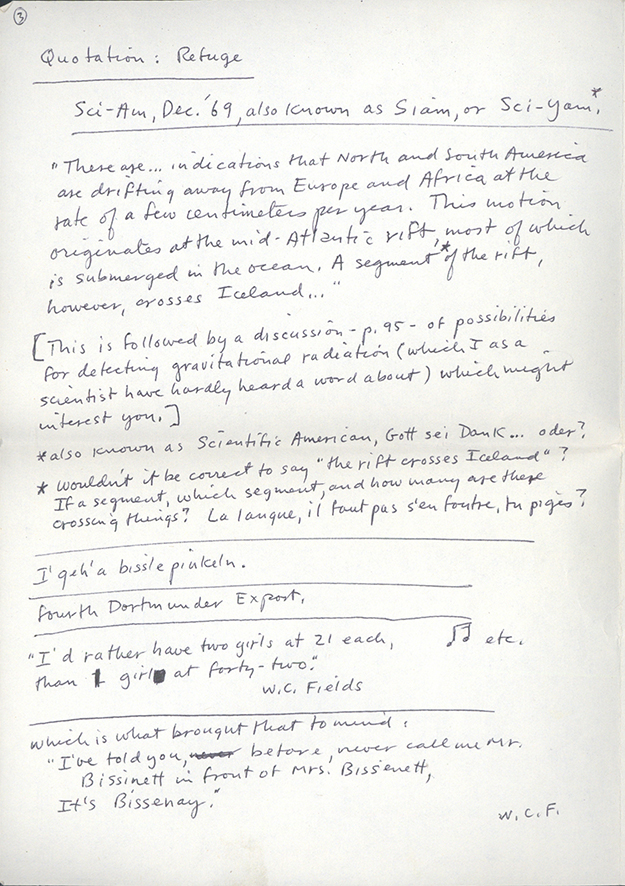 3
Quotation: Refuge
Sci-Am, Dec. '69, also known as Siam, or Sci-Yam.*
"There are... indications that North and South America
are drifting away from Europe and Africa at the
rate of a few centimeters per year. This motion
originates at the mid-Atlantic rift, most of which
is submerged in the ocean. A segment* of the rift,
however, crosses Iceland..."
[This is followed by a discussion - p. 95 - of possibilities
for detecting gravitational radiation (which I as a
scientist have hardly heard a word about) which might
interest you.]
*also known as Scientific American, Gott sei Dank... oder?
* wouldn't it be correct to say "the rift crosses Iceland"?
If a segment, which segment, and how many are there
crossing things? La langue, il faut pas s'en foutre, tu piges?
I' geh' a bissle pinkeln.
fourth Dortmunder Export.
"I'd rather have two girls at 21 each, ♫ etc.
than 1 girl at forty-two."
W.C. Fields
which is what brought that to mind:
"I've told you, never before, never call me Mr.
Bissinett in front of Mrs. Bissenett,
It's Bissenay."
W.C.F.